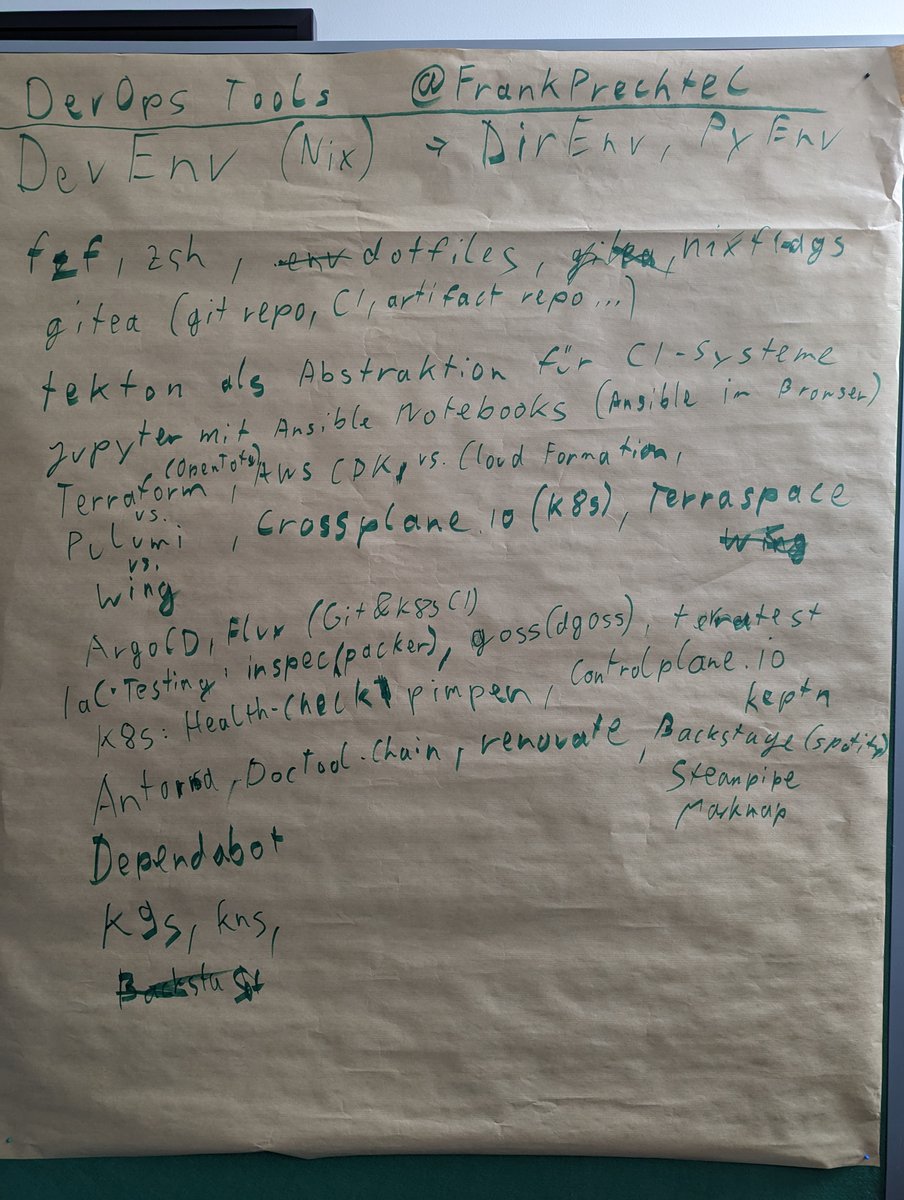 DevOps Tools @FrankPrechtel
DevEnv (Nix) → DirEnv, PyEnv
fzf, zsh, env dotfiles, gitea, nixflags
gitea (git repo, CI, artifact repo ...)
tekton als Abstraktion für CI-Systeme
Jupyter mit Ansible Notebooks (Ansible im Browser)
(OpenTofu)
Terraform, AWS CDK, vs. Cloud Formation,
vs.
Pulumi, Crossplane.io (k8s), Terraspace
vs. wing
wing
ArgoCD, Flux (Git&K8s CI)
IaC-Testing: inspec(packer), goss(dgoss), terratest
K8s: Health-Check pimpen, Controlplane.io
keptn
Antora, Doctool-Chain, renovate, Backstage (spotify)
Steampipe
Markmap
Dependabot
k9s, kns,